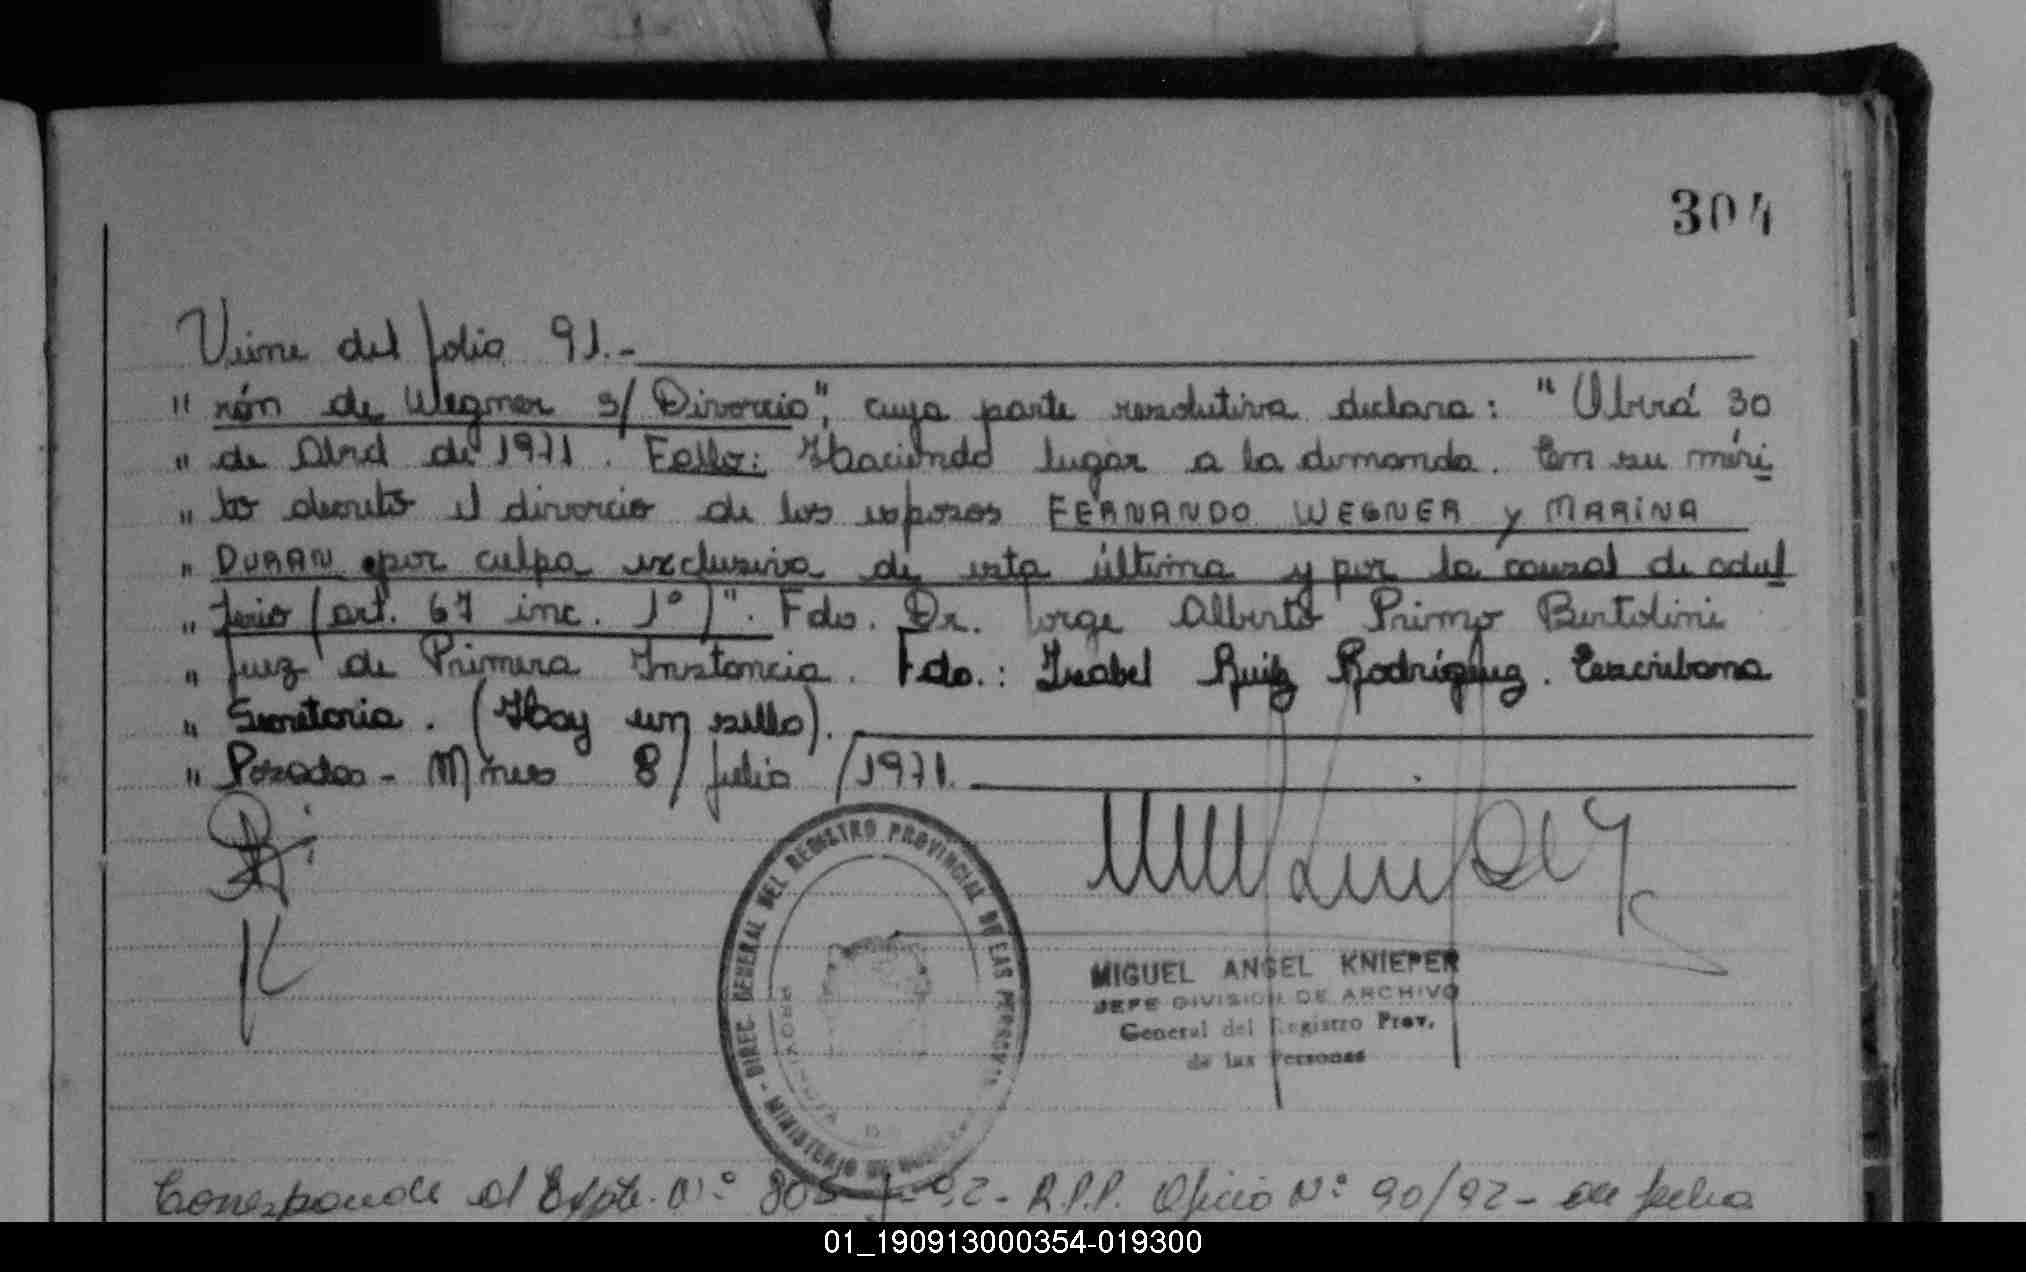 304
Viene del folio 91.-
" rán de Wegner s/ Divorcio", cuya parte resolutiva declara: "Oberá 30
" de Abril de 1971. Fallo: Haciendo lugar a la demanda. En su méri
" to decreto el divorcio de los esposos FERNANDO WEGNER y MARINA
" DURAN por culpa exclusiva de esta última y por la causal de adul
" terio (art. 67 inc. 1°)". Fdo. Dr. Jorge Alberto Primo Bertolini
" Juez de Primera Instancia. Fdo.: Isabel Ruiz Rodríguez. Escribana
" Secretaria. (Hay un sello).
" Posadas - Mnes 8/ julio /1971.
DIREC. GENERAL DEL REGISTRO PROVINCIAL DE LAS PERSONAS - MINISTERIO DE
MIGUEL ANGEL KNIEPER
JEFE DIVISION DE ARCHIVO
General del Registro Prov.
de las Personas
Corresponde al Expte. N°: -92- R.P.P. Oficio N°: 90/92 - de fecha
01_190913000354-019300